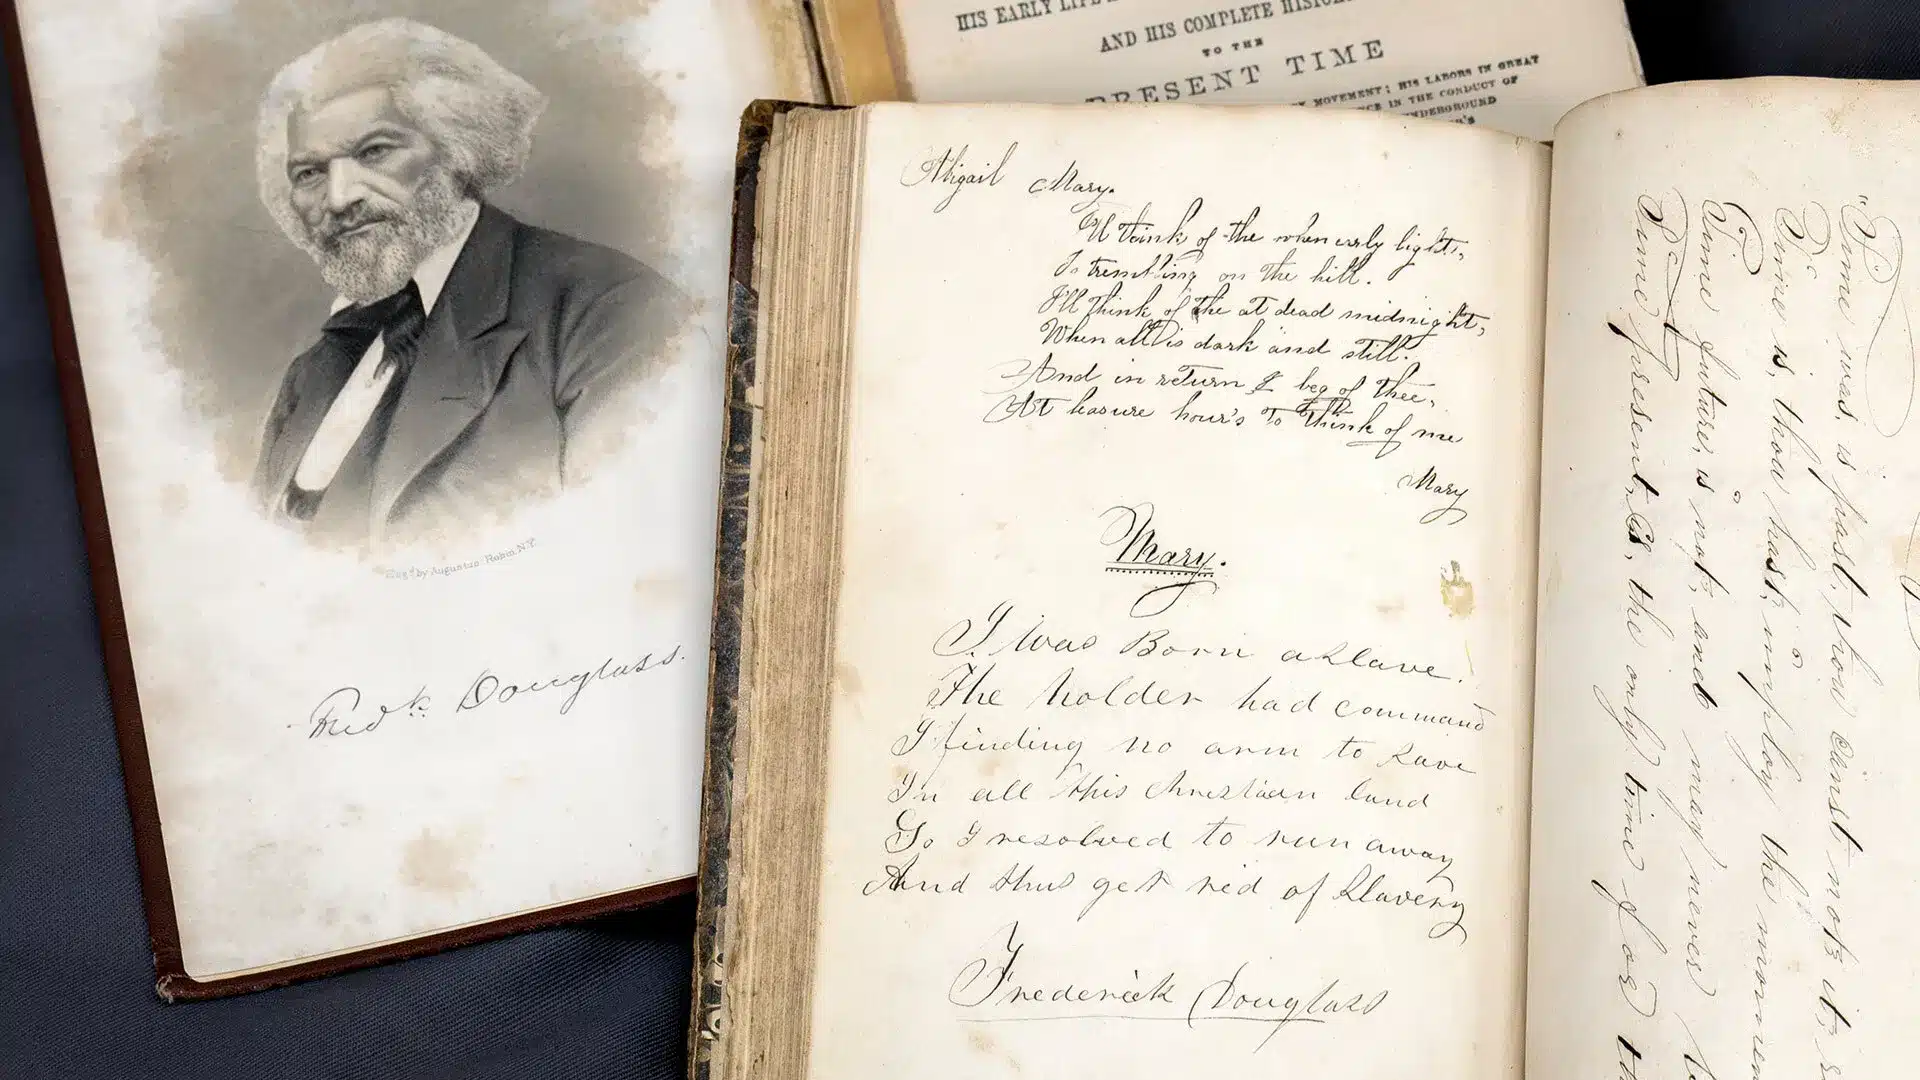 Eng.d by Augustus Robin, N.Y.
Fredk Douglass.
HIS EARLY
AND HIS COMPLETE HISTOR
TO THE
PRESENT TIME
MOVEMENT; HIS LABORS IN GREAT
CE IN THE CONDUCT OF
UNDERGROUND
Abigail Mary.
Il think of the when erly light,
Is trembling on the hill.
I'll think of the at dead midnight,
When all is dark and still.
And in return I beg of thee,
At leasure hour's to think of me
Mary
Mary.
I was Born a Slave.
The holder had command
I finding no arm to Save
In all this Christian land
So I resolved to run away
And thus get rid of Slavery
Frederick Douglass
"Time was, is past, thou canst not it,
Time is, thou hast, imploy the momen
Time future, is not, and may never
Time present, is, the only time for th